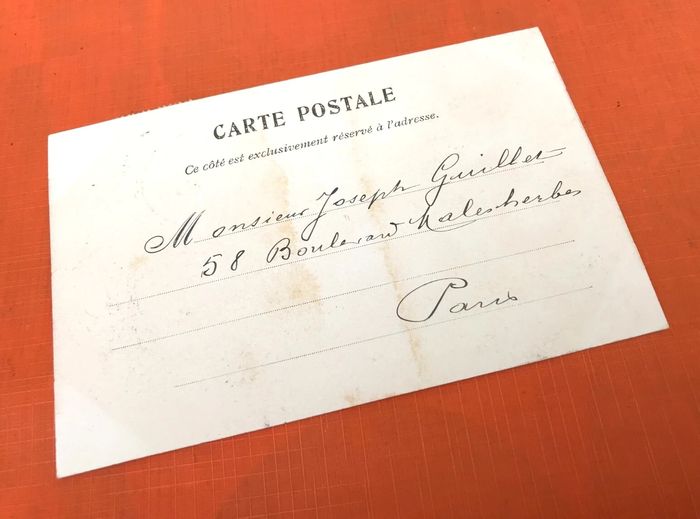 CARTE POSTALE
Ce côté est exclusivement réservé à l'adresse.
Monsieur Joseph Guillet
58 Boulevard Malesherbes
Paris